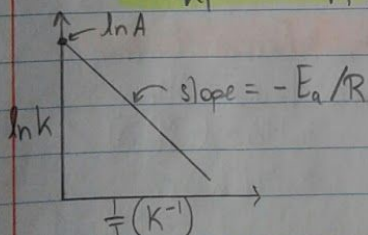 lnA
slope = -Eₐ/R
lnk
1/T (K⁻¹)